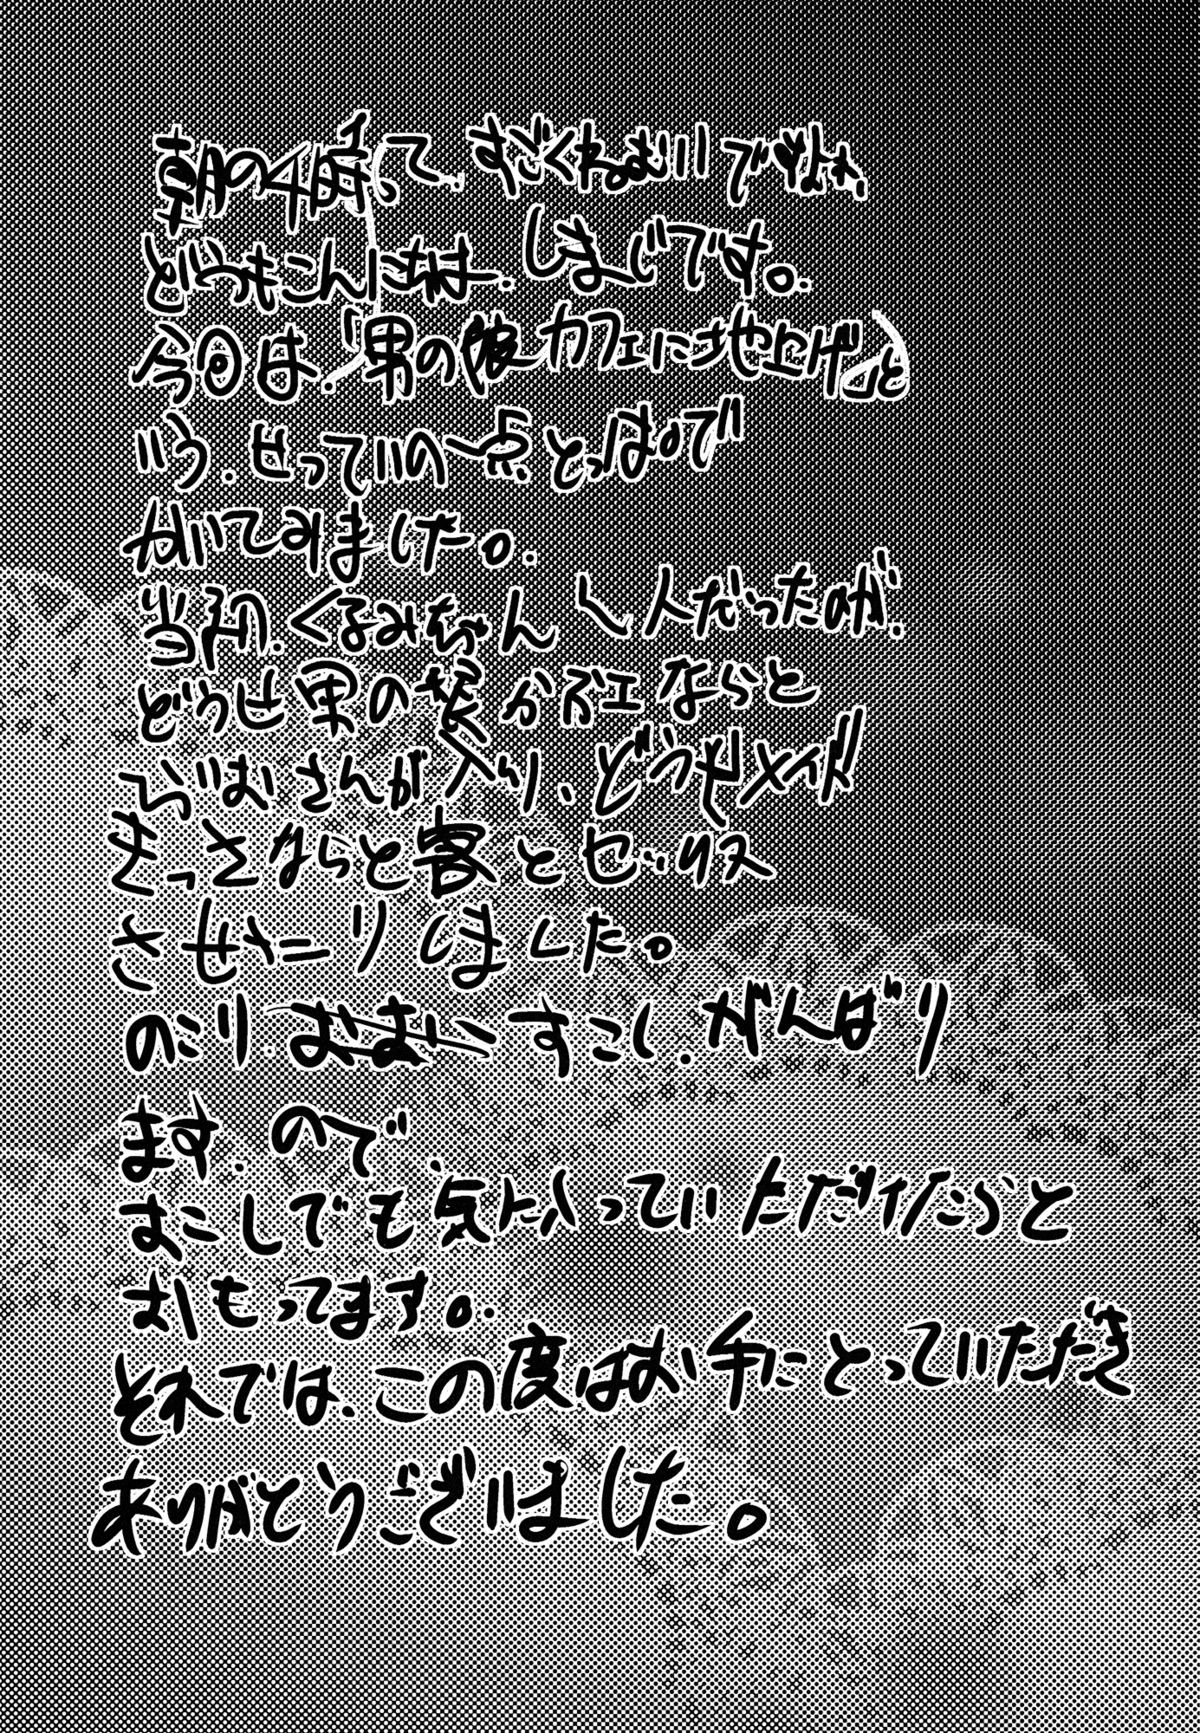 朝の4時って、すごくねむいですよね。
どうもこんにちは。しまじです。
今回は、「男の娘カフェに地上げ」と
いう、せっていの一点とっぱで
かいてみました。
当初、くるみちゃん1人だったのが、
どうせ男の娘かふェならと
らいおさんが入り、どうせメイド
きっさならと客とセックス
させたりしました。
のこりすこし、がんばり
ます。ので、
すこしでも気に入っていただけたらと
おもってます。
それでは、この度はお手にとっていただき
ありがとうございました。